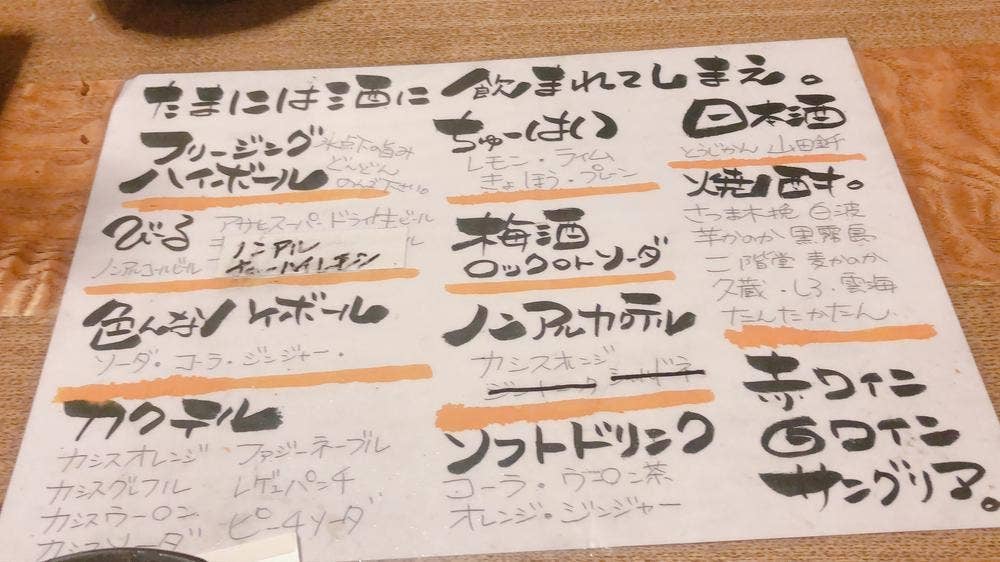 たまには酒に飲まれてしまえ。
フリージング
ハイボール
氷点下の旨み
どんどん
のんで下さい。
びーる
アサヒスーパードライ生ビール
ノンアルコールビール
ノンアル
チューハイレモン
色んなハイボール
ソーダ・コーラ・ジンジャー・
カクテル
カシスオレンジ
カシスグレフル
カシスウーロン
カシスソーダ
ファジーネーブル
レゲエパンチ
ピーチソーダ
ちゅーはい
レモン・ライム
きょほう・プレーン
梅酒
ロック ロト ソーダ
ノンアルカクテル
カシスオレンジ
ソフトドリンク
コーラ・ウーロン茶
オレンジ・ジンジャー
日本酒
とうじかん 山田錦
焼酎。
さつま木挽 白波
芋かのか 黒霧島
二階堂 麦かのか
久蔵・しろ・雲海
たんたかたん
赤ワイン
白ワイン
サングリア。